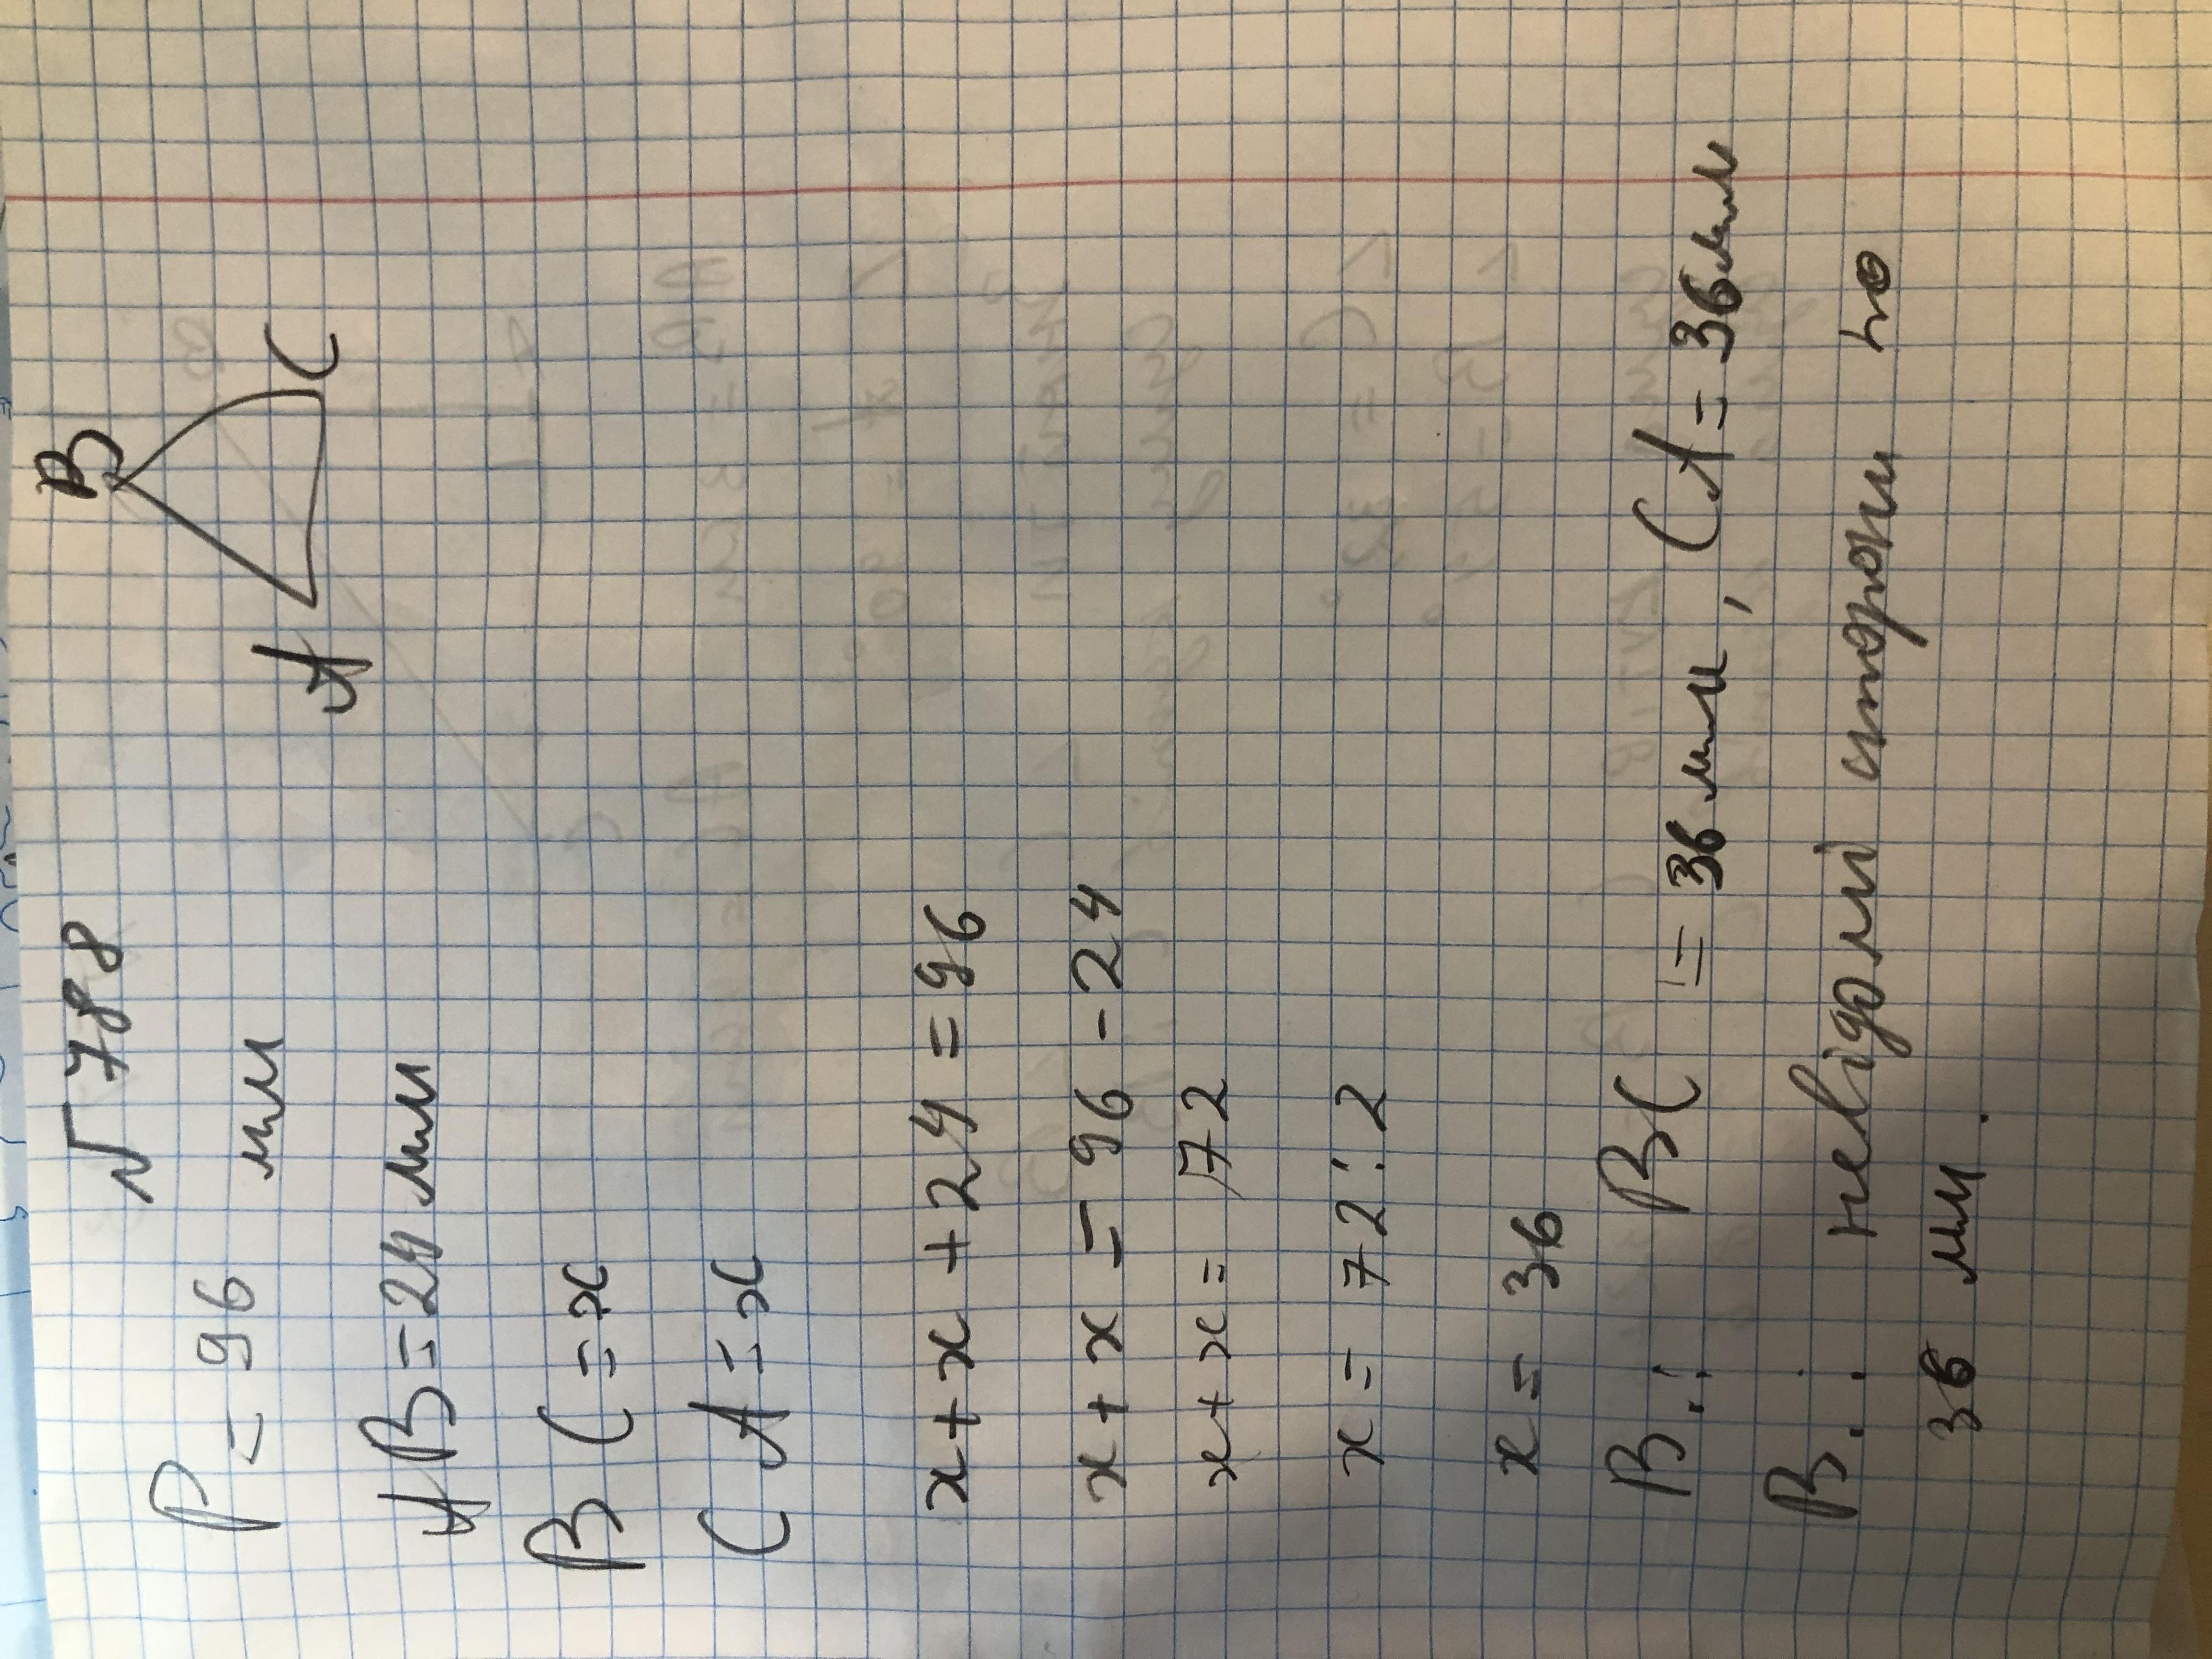 № 788
B
A C
P = 96 мм
AB = 24 мм
BC = x
CA = x
x + x + 24 = 96
x + x = 96 - 24
x + x = 72
x = 72 : 2
x = 36
В.: BC = 36 мм, CA = 36 мм
В.: невідомі сторони по
36 мм.